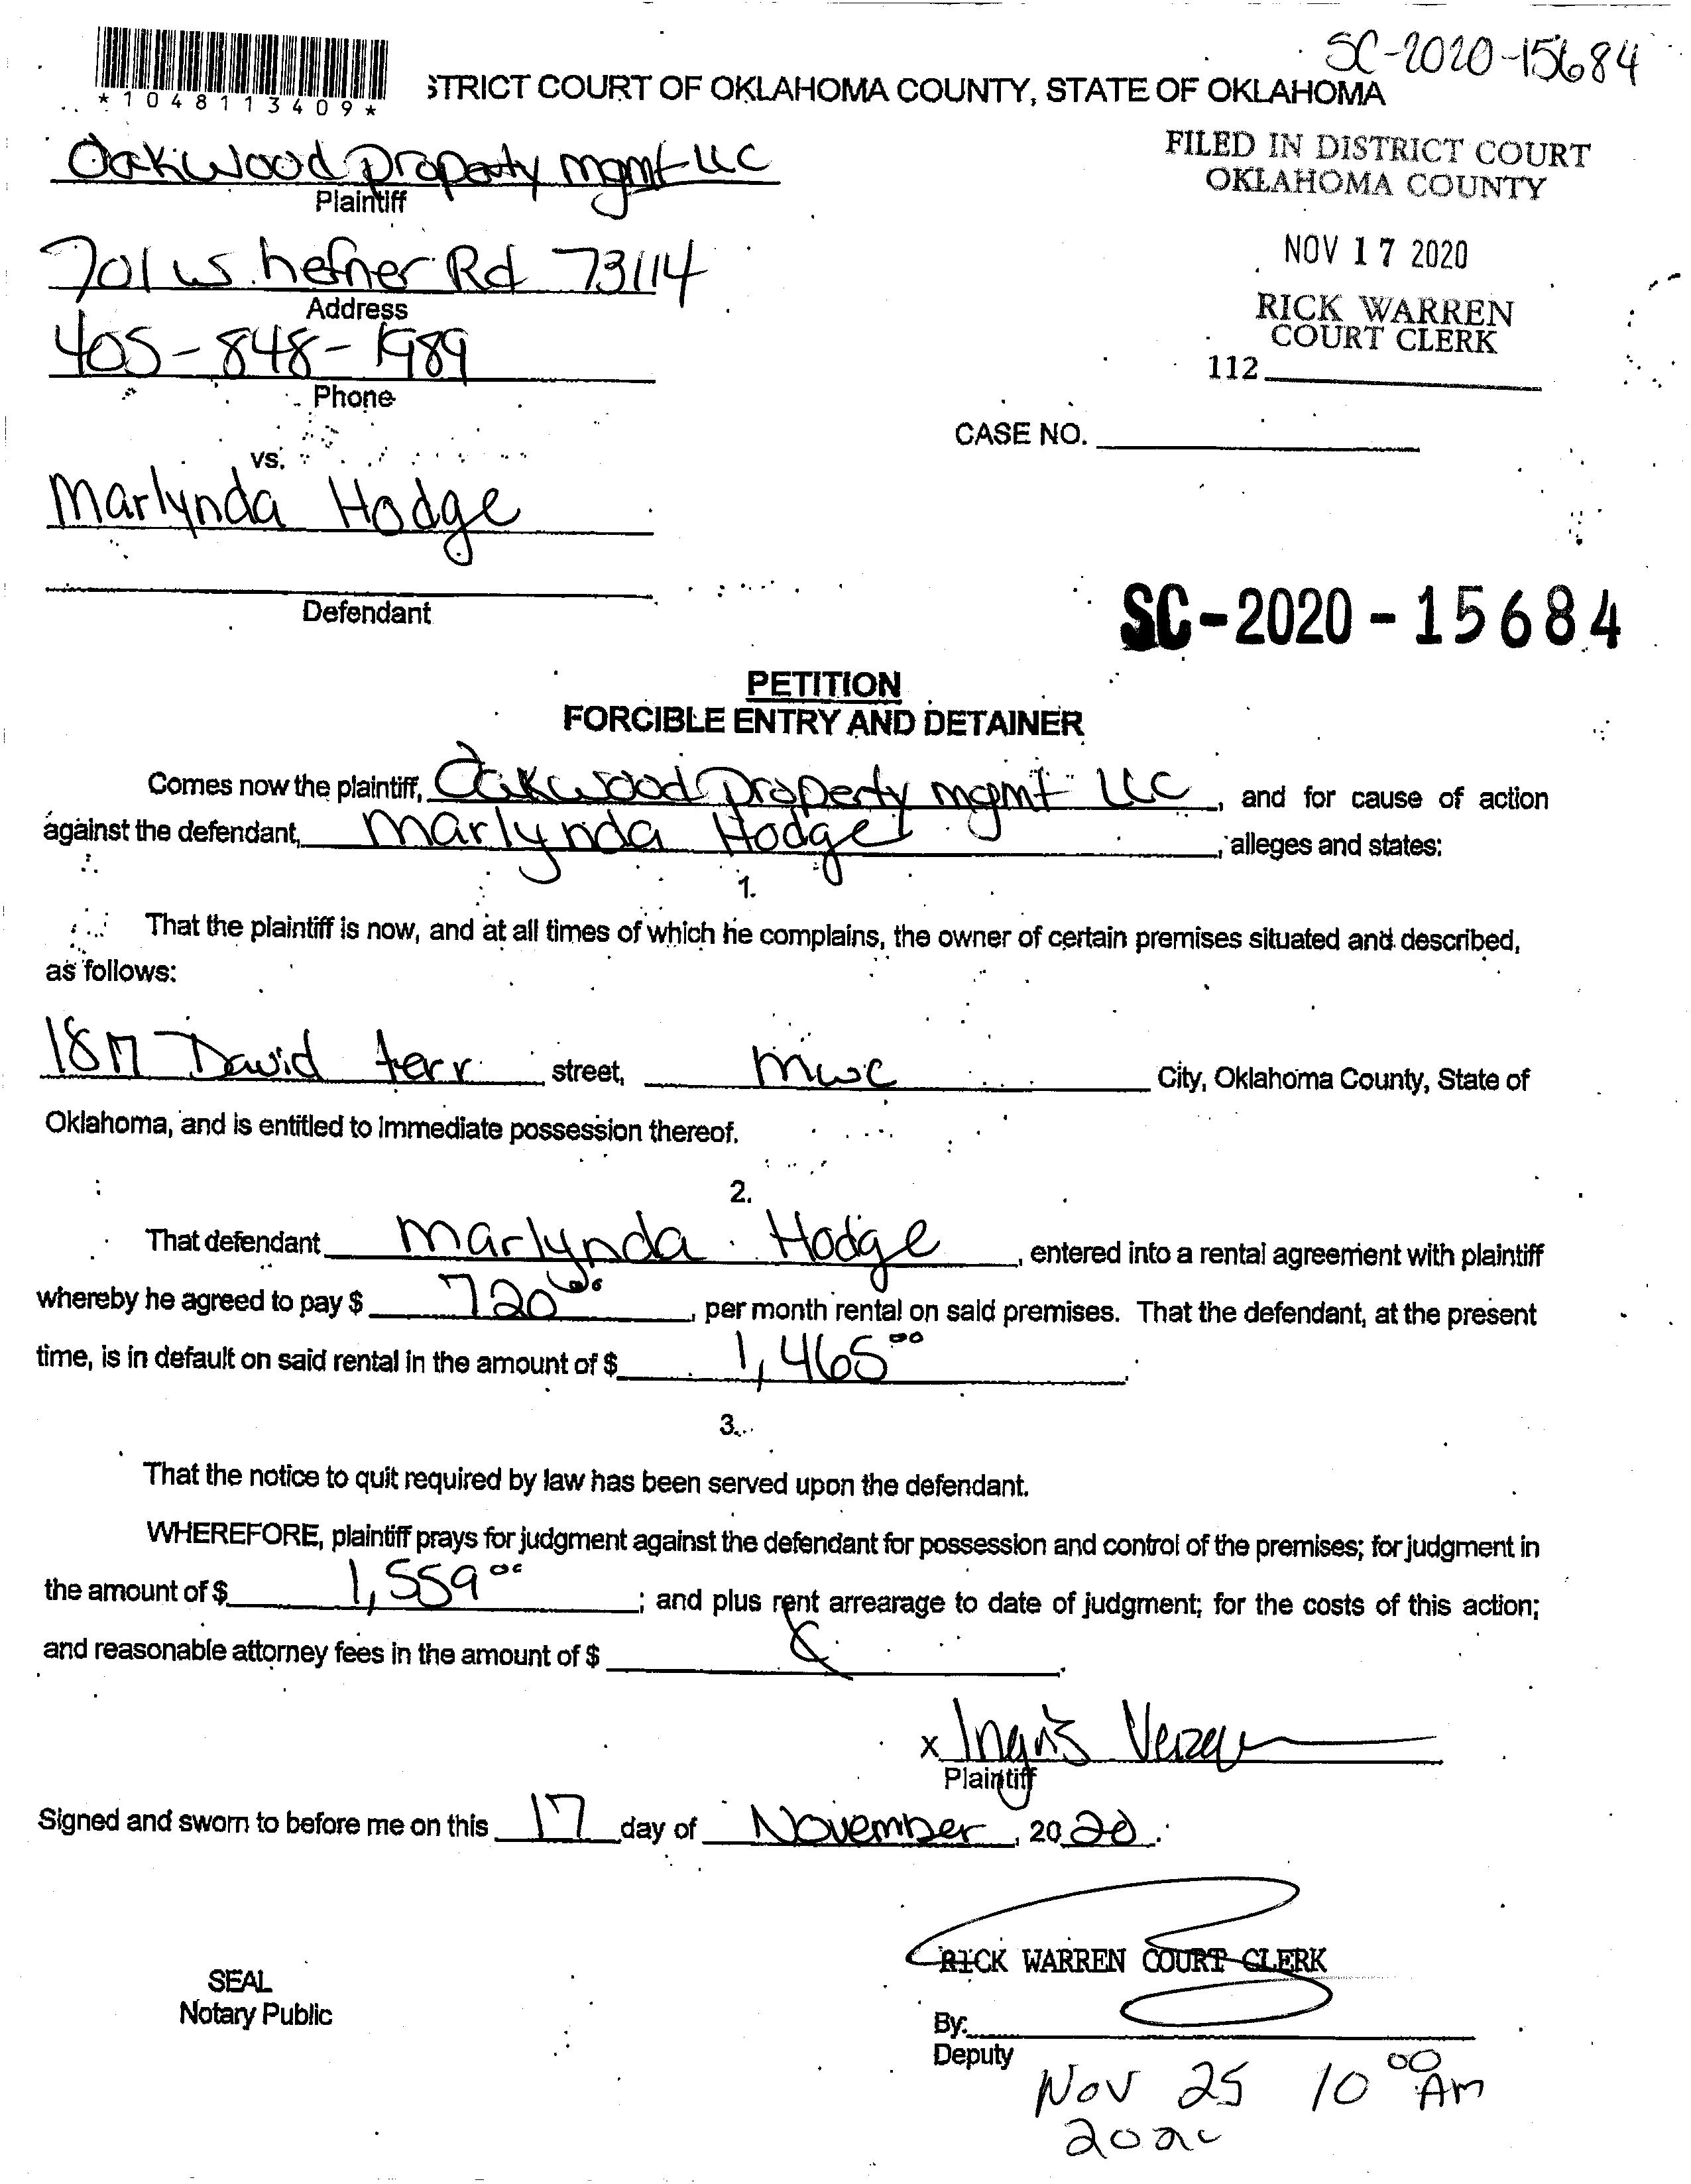 SC-2020-15684
*1048113409*
STRICT COURT OF OKLAHOMA COUNTY, STATE OF OKLAHOMA
Oakwood Property mgmt LLC
Plaintiff
FILED IN DISTRICT COURT
OKLAHOMA COUNTY
701 W. hefner Rd 73114
Address
NOV 17 2020
405-848-1989
Phone
RICK WARREN
COURT CLERK
112
CASE NO.
vs.
Marlynda Hodge
Defendant
SC-2020-15684
PETITION
FORCIBLE ENTRY AND DETAINER
Comes now the plaintiff, Oakwood Property mgmt LLC, and for cause of action
against the defendant, Marlynda Hodge, alleges and states:
1.
That the plaintiff is now, and at all times of which he complains, the owner of certain premises situated and described,
as follows:
1817 David terr street, mwc City, Oklahoma County, State of
Oklahoma, and is entitled to immediate possession thereof.
2.
That defendant Marlynda Hodge, entered into a rental agreement with plaintiff
whereby he agreed to pay $ 720 00, per month rental on said premises. That the defendant, at the present
time, is in default on said rental in the amount of $ 1,465 00.
3.
That the notice to quit required by law has been served upon the defendant.
WHEREFORE, plaintiff prays for judgment against the defendant for possession and control of the premises; for judgment in
the amount of $ 1,559 00; and plus rent arrearage to date of judgment; for the costs of this action;
and reasonable attorney fees in the amount of $
x
Plaintiff
Signed and sworn to before me on this 17 day of November, 2020.
RICK WARREN COURT CLERK
SEAL
Notary Public
By:
Deputy
Nov 25 10 00 Am
2020